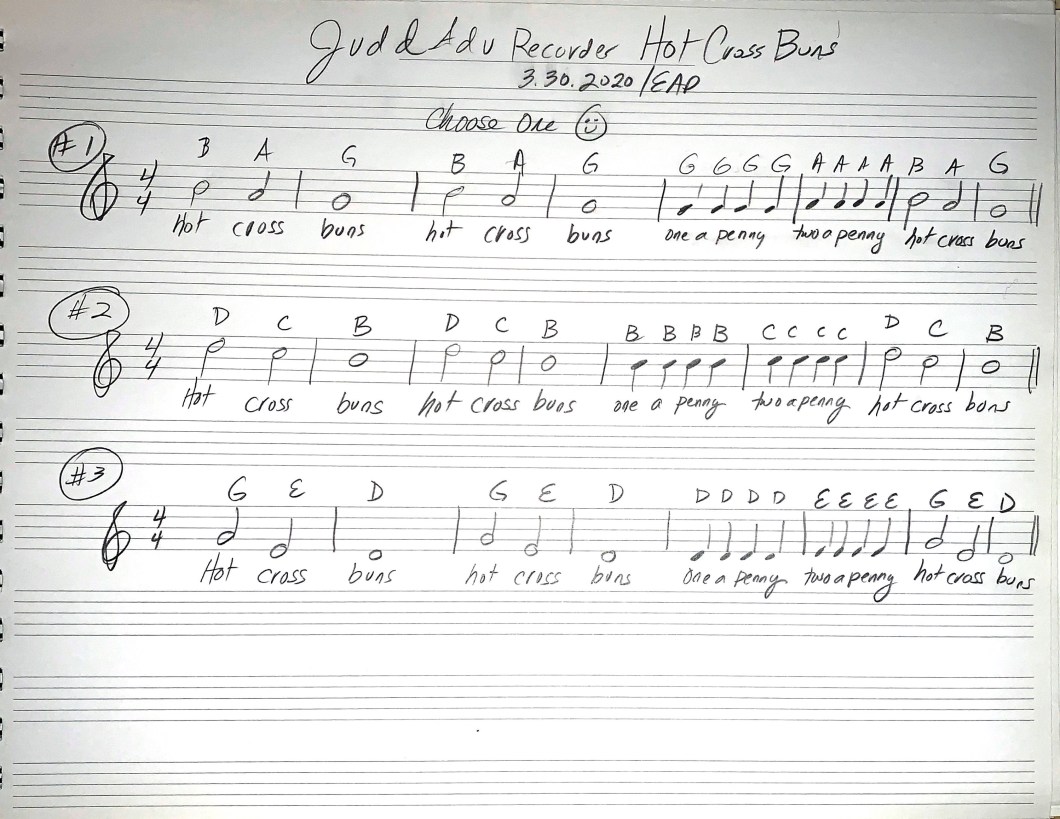 Judd Adv Recorder Hot Cross Buns
3.30.2020/EAP
Choose One
#1
B A G B A G G G G G A A A A B A G
4
4
Hot cross buns hot cross buns one a penny two a penny hot cross buns
#2
D C B D C B B B B B C C C C D C B
4
4
Hot cross buns hot cross buns one a penny two a penny hot cross buns
#3
G E D G E D D D D D E E E E G E D
4
4
Hot cross buns hot cross buns one a penny two a penny hot cross buns